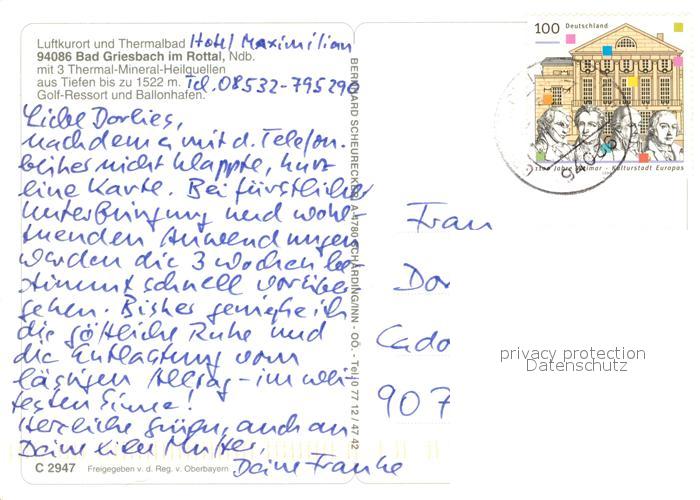 Luftkurort und Thermalbad Hotel Maximilian
94086 Bad Griesbach im Rottal, Ndb.
mit 3 Thermal-Mineral-Heilquellen
aus Tiefen bis zu 1522 m. Tel. 08532-795290
Golf-Ressort und Ballonhafen.
Liebe Dorlies,
nachdem es mit d. Telefon.
bisher nicht klappte, kurz
eine Karte. Bei fürstlicher
Unterbringung und wohl-
tuenden Anwendungen
werden die 3 Wochen be-
stimmt schnell vorüber
gehen. Bisher genieße ich
die göttliche Ruhe und
die Entlastung vom
lästigen Alltag - im wei-
testen Sinne!
Herzliche Grüße, auch an
Deine liebe Mutter,
Deine Franke
C 2947 Freigegeben v. d. Reg. v. Oberbayern
BERNHARD SCHEURECKER, A-4780 SCHÄRDING/INN - OÖ. - Tel. 0 77 12 / 47 42
100 Deutschland
1100 Jahre Weimar - Kulturstadt Europas
Frau
Dor
Cado
907
privacy protection
Datenschutz